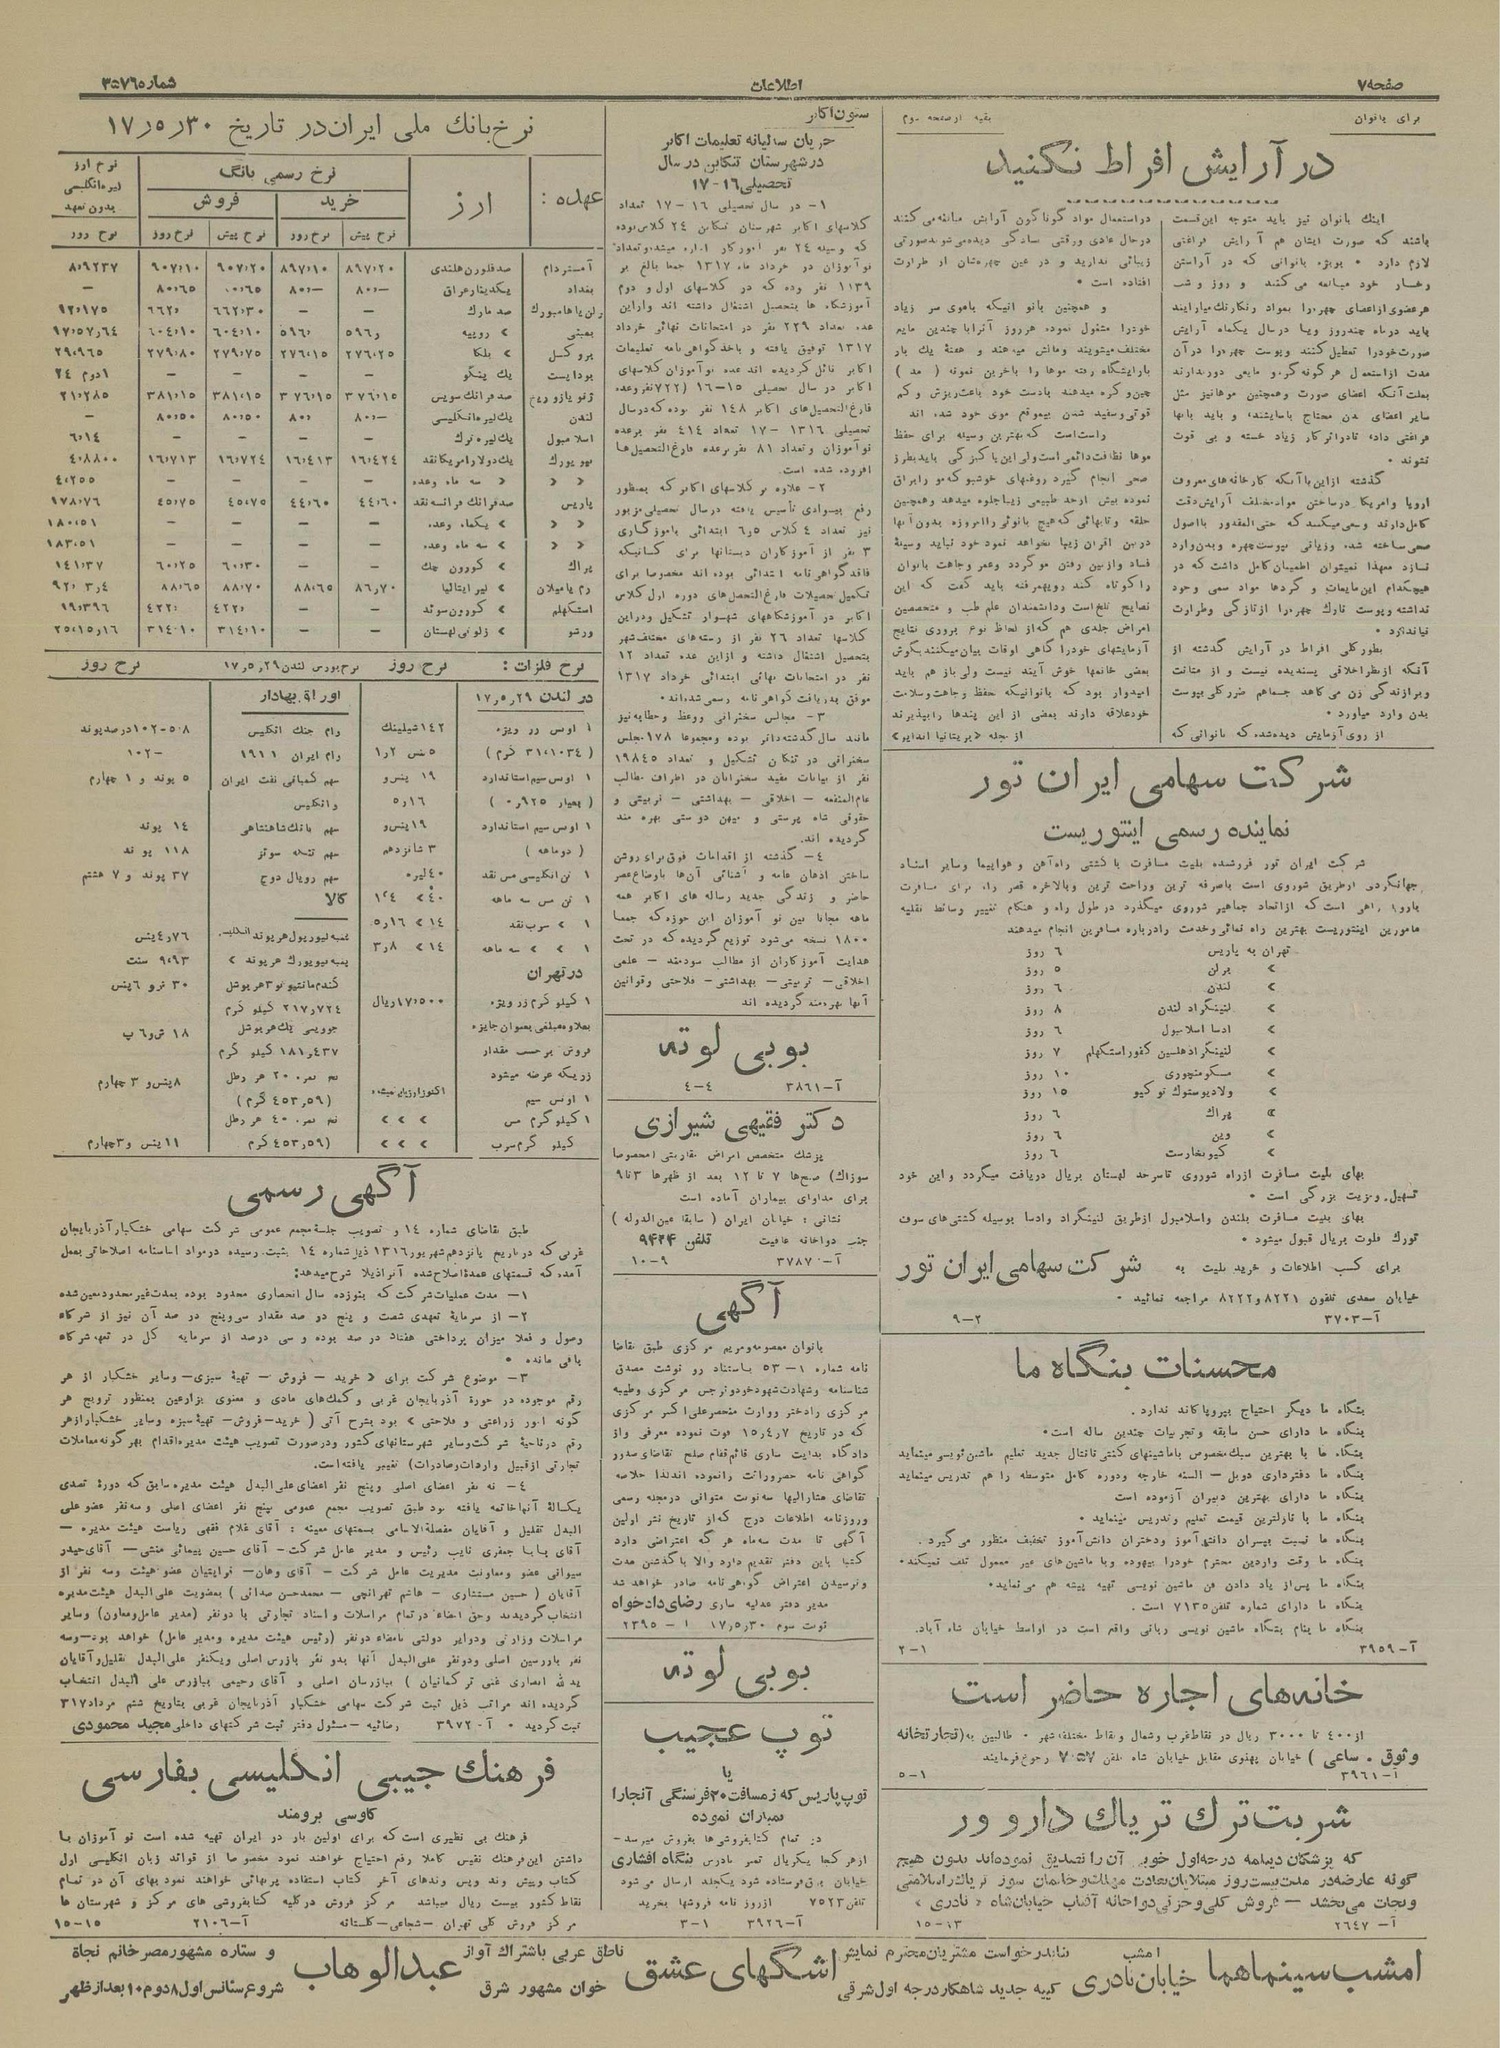 صفحه ۷
اطلاعات
شماره ۳۵۷۶
برای بانوان
بقیه از صفحه دوم
در آرایش افراط نکنید
اینك بانوان نیز باید متوجه این قسمت
باشند که صورت ایشان هم آرایش فراغتی
لازم دارد • بویژه بانوانی که در آراستن
رخسار خود مبالغه می‌کنند و روز و شب
هر عضوی از اعضای چهره را بمواد رنگارنك میارایند
باید در ماه چند روز و یا در سال یکماه آرایش
صورت خود را تعطیل کنند و پوست چهره را در آن
مدت از استعمال هر گونه گرد و مایعی دور بدارند
بعلت آنکه اعضای صورت و همچنین موها نیز مثل
سایر اعضای بدن محتاج بآسایشند، و باید بآنها
فراغتی داد، تا در اثر کار زیاد خسته و بی قوت
نشوند •
گذشته از این با آنکه کارخانه‌های معروف
اروپا و امریکا در ساختن مواد مختلف آرایش دقت
کامل دارند و سعی میکنند که حتی المقدور با اصول
صحی ساخته شده و زیانی بپوست چهره و بدن وارد
نسازد معهذا نمیتوان اطمینان کامل داشت که در
هیچکدام این مایعات و گردها مواد سمی وجود
نداشته و پوست نازك چهره را از تازگی و طراوت
نیاندازد •
بطور کلی افراط در آرایش گذشته از
آنکه از نظر اخلاقی پسندیده نیست و از متانت
و برازندگی زن می‌کاهد جسماً هم ضرر کلی بپوست
بدن وارد میآورد •
از روی آزمایش دیده شده که بانوانی که
در استعمال مواد گوناگون آرایش مبالغه می‌کنند
در حال عادی و وقتی سادگی دیده می‌شوند صورتی
زیبائی ندارند و در عین چهره‌شان از طراوت
افتاده است •
و همچنین بانو انیکه با موی سر زیاد
خود را مشغول نموده هر روز آنرا با چندین مایع
مختلف میشویند و مالش میدهند و هفته یك بار
بآرایشگاه رفته موها را بآخرین نمونه ( مد )
چین و کره میدهند بادست خود باعث ریزش و کم
قوتی و سفید شدن بیموقع موی خود شده اند
راست است که بهترین وسیله برای حفظ
موها نظافت دائمی است ولی این پاکیزگی باید بطرز
صحی انجام گیرد روغنهای خوشبو که مو را براق
نموده بیش از حد طبیعی زیبا جلوه میدهد و همچنین
حلقه و تابهائی که هیچ بانوئی را امروزه بدون آنها
در بین اقران زیبا نخواهد نمود خود نباید وسیلهٔ
فساد و از بین رفتن مو گردد و عمر و جاهت بانوان
را کوتاه کند رویهمرفته باید گفت که این
نصایح تلخ است و دانشمندان علم طب و متخصصین
امراض جلدی هم که از لحاظ نوع پروری نتایج
آزمایشهای خود را گاهی اوقات بیان میکنند بگوش
بعضی خانمها خوش آیند نیست ولی باز هم باید
امیدوار بود که بانوانیکه بحفظ وجاهت و سلامت
خود علاقه دارند بعضی از این پندها را بپذیرند
از مجله «بریتانیا اندایو»
شرکت سهامی ایران تور
نماینده رسمی اینتوریست
شرکت ایران تور فروشنده بلیت مسافرت با کشتی راه‌آهن و هواپیما و سایر اسناد
جهانگردی از طریق شوروی است باصرفه ترین و راحت ترین و بالاخره قصر راه برای مسافرت
باروپا راهی است که از اتحاد جماهیر شوروی میگذرد در طول راه و هنگام تغییر وسائط نقلیه
مامورین اینتوریست بهترین راه نمائی و خدمت را درباره مسافرین انجام میدهند
تهران به پاریس ۶ روز
» برلن ۵ روز
» لندن ۶ روز
» لنینگراد لندن ۸ روز
» ادسا اسلامبول ۶ روز
» لنینگراد هلسین کفور استکهلم ۷ روز
» مسکو منچوری ۱۰ روز
» ولادیوستوك تو کیو ۱۵ روز
» پراك ۶ روز
» وین ۶ روز
» کیو بخارست ۶ روز
بهای بلیت مسافرت از راه شوروی تا سرحد لهستان بریال دریافت میگردد و این خود
تسهیل و مزیت بزرگی است •
بهای بلیت مسافرت بلندن و اسلامبول از طریق لنینگراد و ادسا بوسیله کشتی‌های سوف
تورك فلوت بریال قبول میشود •
برای کسب اطلاعات و خرید بلیت به شرکت سهامی ایران تور
خیابان سعدی تلفون ۸۲۲۱ و ۸۲۲۲ مراجعه نمائید •
آ-۳۷۰۳ ۲-۹
محسنات بنگاه ما
بنگاه ما دیگر احتیاج بپروپاکاند ندارد .
بنگاه ما دارای حسن سابقه و تجربیات چندین ساله است•
بنگاه ما با بهترین سبك مخصوص باماشینهای کنتی نانتال جدید تعلیم ماشین نویسی مینماید
بنگاه ما دفترداری دوبل — السنه خارجه و دوره کامل متوسطه را هم تدریس مینماید
بنگاه ما دارای بهترین دبیران آزموده است
بنگاه ما با نازلترین قیمت تعلیم و تدریس مینماید •
بنگاه ما نسبت بپسران دانش‌آموز و دختران دانش‌آموز تخفیف منظور می گیرد .
بنگاه ما وقت واردین محترم خود را بیهوده و با ماشین‌های غیر معمول تلف نمیکند•
بنگاه ما پس‌از یاد دادن فن ماشین نویسی تهیه پیشه هم می نماید•
بنگاه ما دارای شماره تلفن ۷۱۳۵ است .
بنگاه ما بنام بنگاه ماشین نویسی ربانی واقع است در اواسط خیابان شاه آباد.
آ-۳۹۵۹ ۱-۲
خانه‌های اجاره حاضر است
از ۴۰۰ تا ۳۰۰۰ ریال در نقاط غرب و شمال و نقاط مختلفهٔ شهر • طالبین به (تجارتخانه
وثوق . ساعی ) خیابان پهلوی مقابل خیابان شاه تلفن ۷۰۵۷ رجوع فرمایند
آ-۳۹۶۱ ۱-۵
شربت ترك تریاك دارو ور
که پزشکان دیپلمه درجه اول خوبی آن را تصدیق نموده‌اند بدون هیچ
گونه عارضه در مدت بیست روز مبتلایان بعادت مهلك و خانمان سوز تریاك را سلامتی
و نجات می‌بخشد — فروش کلی و جزئی دواخانه آفتاب خیابان شاه « نادری »
آ- ۲۶۴۷ ۱۳-۱۵
ستون اکابر
جریان سالیانه تعلیمات اکابر
در شهرستان تنکابن در سال
تحصیلی ۱۶-۱۷
۱- در سال تحصیلی ۱۶ -۱۷ تعداد
کلاسهای اکابر شهرستان تنکابن ۲۴ کلاس بوده
که وسیله ۲۴ نفر آموزگار اداره میشد و تعداد
نوآموزان در خرداد ماه ۱۳۱۷ جمعاً بالغ بر
۱۱۳۹ نفر بوده که در کلاسهای اول و دوم
آموزشگاه ها بتحصیل اشتغال داشته اند و از این
عده تعداد ۲۲۹ نفر در امتحانات نهائی خرداد
۱۳۱۷ توفیق یافته و باخذ گواهی‌نامه تعلیمات
اکابر نائل گردیده اند عده نوآموزان کلاسهای
اکابر در سال تحصیلی ۱۵-۱۶ (۷۲۲ نفر و عده
فارغ‌التحصیل‌های اکابر ۱۴۸ نفر بوده که در سال
تحصیلی ۱۳۱۶ -۱۷ تعداد ۴۱۴ نفر بر عده
نوآموزان و تعداد ۸۱ نفر بر عده فارغ‌التحصیل‌ها
افزوده شده است.
۲- علاوه بر کلاسهای اکابر که بمنظور
رفع بیسوادی تأسیس یافته در سال تحصیلی مزبور
نیز تعداد ۴ کلاس ۵ر۶ ابتدائی باموزگاری
۳ نفر از آموزگاران دبستانها برای کسانیکه
فاقد گواهی نامه ابتدائی بوده اند مخصوصاً برای
تکمیل تحصیلات فارغ‌التحصل‌های دوره اول کلاس
اکابر در آموزشگاههای شهسوار تشکیل و در این
کلاسها تعداد ۲۶ نفر از رسته‌های مختلف شهر
بتحصیل اشتغال داشته و از این عده تعداد ۱۲
نفر در امتحانات نهائی ابتدائی خرداد ۱۳۱۷
موفق بدریافت گواهی نامه رسمی شده‌اند•
۳- مجالس سخنرانی و وعظ و خطابه نیز
مانند سال گذشته دائر بوده و مجموعاً ۱۷۸ مجلس
سخنرانی در تنکابن تشکیل و تعداد ۱۹۸۴۵
نفر از بیانات مفید سخنرانان در اطراف مطالب
عام‌المنفعه — اخلاقی — بهداشتی — تربیتی و
حقوقی شاه پرستی و میهن دوستی بهره مند
گردیده اند.
۴- گذشته از اقدامات فوق برای روشن
ساختن اذهان عامه و آشنائی آن‌ها باوضاع عصر
حاضر و زندگی جدید رساله های اکابر همه
ماهه مجاناً بین نو آموزان این حوزه که جمعاً
۱۸۰۰ نسخه می‌شود توزیع گردیده که در تحت
هدایت آموزگاران از مطالب سودمند — علمی
اخلاقی— تربیتی — بهداشتی — فلاحتی و قوانین
آنها بهره‌مند گردیده اند
بوبی لوته
آ-۳۸۶۱ ۴-۴
دکتر فقیهی شیرازی
پزشك متخصص امراض مقاربتی (مخصوصاً
سوزاك) صبح‌ها ۷ تا ۱۲ بعد از ظهرها ۳ تا ۹
برای مداوای بیماران آماده است
نشانی : خیابان ایران ( سابقاً عین‌الدوله )
جنب دواخانه عافیت تلفن ۹۴۲۴
آ-۳۷۸۷ ۹-۱۰
آگهی
بانوان معصومه و مریم مرکزی طبق تقاضا
نامه شماره ۱-۵۳ باستناد رو نوشت مصدق
شناسنامه و شهادت شهود خود و نرجس مرکزی و طیبه
مرکزی را دختر و وراث منحصر علی اکبر مرکزی
که در تاریخ ۷ر۴ر۱۵ فوت نموده معرفی و از
دادگاه بدایت ساری قائم‌مقام صلح تقاضای صدور
گواهی نامه حصر وراثت را نموده اند لذا خلاصه
تقاضای مشارالیها سه نوبت متوالی در مجله رسمی
و روزنامه اطلاعات درج که از تاریخ نشر اولین
آگهی تا مدت سه‌ماه هر که اعتراضی دارد
کتباً باین دفتر تقدیم دارد والا با گذشتن مدت
و نرسیدن اعتراض گواهی نامه صادر خواهد شد
مدیر دفتر عدلیه ساری رضای دادخواه
نوبت سوم ۳۰ر۵ر۱۷ ا – ۲۳۹۵
بوبی لوته
توپ عجیب
یا
توپ پاریس که ز مسافت ۲۰ فرسنگی آنجا را
بمباران نموده
در تمام کتابفروشی‌ها بفروش میرسد-
از هر کجا یکریال تمبر بآدرس بنگاه افشاری
خیابان برق فرستاده شود یکجلد ارسال می شود
تلفن ۷۵۲۳ از روز نامه فروشها بخرید
آ-۳۹۲۶ ۱-۳
نرخ بانك ملی ایران در تاریخ ۳۰ر۵ر۱۷
عهده : | ارز | نرخ رسمی بانگ | نرخ ارز
خرید | فروش | لیره انگلیسی
بدون تعهد
نرخ پیش | نرخ روز | نرخ پیش | نرخ روز | نرخ روز
آمستردام | صد فلورن هلندی | ۸۹۷٫۲۰ | ۸۹۷٫۱۰ | ۹۰۷٫۲۰ | ۹۰۷٫۱۰ | ۸٫۹۲۳۷
بغداد | یکدینار عراق | ۸۰٫— | ۸۰٫— | ۸۰٫۶۵ | –
برلن یا هامبورك | صد مارك | – | – | ۶۶۲٫۳۰ | ۶۶۲٫ | ۹۲٫۱۷۵
بمبئی | » روپیه | ۵۹۶٫ | ۵۹۶٫ | ۶۰۴٫۱۰ | ۶۰۴٫۱۰
بروکسل | » بلگا | ۲۷۶٫۲۵ | ۲۷۶٫۱۵ | ۲۷۹٫۷۵ | ۲۷۹٫۸۰ | ۲۹٫۹۶۵
بوداپست | یك پنگو | – | – | – | – | ۲۴ ۱دوم
ژنو یا زوریخ | صد فرانك سویس | ۳۷۶٫۱۵ | ۳۷۶٫۱۵ | ۳۸۱٫۱۵ | ۳۸۱٫۱۵ | ۲۱٫۲۸۵
لندن | یك لیره انگلیسی | ۸۰٫— | ۸۰٫ | ۸۰٫۵۰ | ۸۰٫۵۰ | –
اسلامبول | یك لیره ترك | – | – | – | – | ۶٫۱۴
نیویورك | یك دولار امریکا نقد | ۱۶٫۴۲۴ | ۱۶٫۴۱۳ | ۱۶٫۷۲۴ | ۱۶٫۷۱۳ | ۴٫۸۸۰۰
» » | » سه ماه وعده | ۴٫۲۵۵
پاریس | صد فرانك فرانسه نقد | ۴۴٫۶۰ | ۴۴٫۶۰ | ۴۵٫۷۵ | ۴۵٫۷۵ | ۱۷۸٫۷۶
» » | » یکماه وعده | – | – | – | – | ۱۸۰٫۵۱
» » | » سه ماه وعده | – | – | – | – | ۱۸۳٫۵۱
پراك | » کورون چك | – | – | ۶۰٫۳۰ | ۶۰٫۲۵ | ۱۴۱٫۳۷
رم یا میلان | » لیر ایتالیا | ۸۶٫۷۰ | ۸۸٫۶۵ | ۸۸٫۷۰ | ۸۸٫۶۵ | ۹۲٫۳ر۴
استکهلم | » کورون سوئد | – | – | ۴۲۲٫ | ۴۲۲٫ | ۱۹٫۳۹۶
ورشو | » زلوتی لهستان | – | – | ۳۱۴٫۱۰ | ۳۱۴٫۱۰ | ۲۵٫۱۵ر۱۶
نرخ فلزات : نرخ روز
نرخ بورس لندن ۲۹ر۵ر۱۷ نرخ روز
در لندن ۲۹ر۵ر۱۷
۱ اونس زر ویژه ۱۴۲ شیلینك
( ۳۱٫۱۰۳۴ گرم ) ۵ پنس ۲ر۱
۱ اونس سیم استاندارد ۱۹ پنس و
( بعیار ۹۲۵ر۰ ) ۱۶ر۵
۱ اونس سیم استاندارد ۱۹ پنس و
( دوماهه ) ۳ شانزدهم
۱ تن انگلیسی مس نقد ۴۰ لیره
۱ تن مس سه ماهه ۴۰»
۱ » سرب نقد ۱۴» ۱۶ر۵
۱ » » سه ماهه ۱۴» ۸ر۳
در تهران
۱ کیلو گرم زر ویژه ۱۷٫۵۰۰ ریال
بعلاوه مبلغی بعنوان جایزه
فروش بر حسب مقدار
زریکه عرضه میشود
۱ اونس سیم
۱ کیلو گرم مس » » »
کیلو گرم سرب » » »
اوراق بهادار
وام جنك انگلیس ۱۰۲-۵۰۸ درصد پوند
وام ایران ۱۹۱۱ ۱۰۲-
سهم کمپانی نفت ایران ۵ پوند و ۱ چهارم
و انگلیس
سهم بانك شاهنشاهی ۱۴ پوند
سهم تنکه سوئز ۱۱۸ پوند
سهم رویال دوچ ۳۷ پوند و ۷ هشتم
کالا
پنبه لیورپول هر پوند انگلیس ۷۶ر۴ پنس
پنبه نیویورك هر پوند » ۹٫۹۳ سنت
گندم مانیتوبو ۳ هر بوشل ۳۰ ش و ۶ پنس
۷۲۴ر۲۱۷ کیلو گرم
جو روسی یك هر بوشل ۱۸ ش و ۶ پ
۴۳۷ر۱۸۱ کیلو گرم
نخ نمره ۲۰ هر رطل ۸ پنس و ۳ چهارم
(۵۹ر۴۵۳ گرم)
نخ نمره ۴۰ هر رطل
(۵۹ر۴۵۳ گرم ۱۱ پنس و ۳ چهارم
آگهی رسمی
طبق تقاضای شماره ۱۴ و تصویب جلسهٔ مجمع عمومی شرکت سهامی خشکبار آذربایجان
غربی که در تاریخ پانزدهم شهریور ۱۳۱۶ ذیل شماره ۱۴ بثبت رسیده در مواد اساسنامه اصلاحاتی بعمل
آمده که قسمتهای عمدهٔ اصلاح شده آنرا ذیلا شرح میدهد:
۱- مدت عملیات شرکت که بنوزده سال انحصاری محدود بوده بمدت غیر محدود معین شده
۲- از سرمایهٔ تعهدی شصت و پنج دو صد مقدار سی و پنج در صد آن نیز از شرکاء
وصول و فعلا میزان پرداختی هفتاد در صد بوده و سی درصد از سرمایه کل در تعهد شرکاء
باقی مانده •
۳- موضوع شرکت برای « خرید — فروش — تهیهٔ سبزی— و سایر خشکبار از هر
رقم موجوده در حوزهٔ آذربایجان غربی و کمك‌های مادی و معنوی بزارعین بمنظور ترویج هر
گونه امور زراعتی و فلاحتی » بود بشرح آتی ( خرید-فروش- تهیهٔ سبزه و سایر خشکبار از هر
رقم در ناحیهٔ شرکت و سایر شهرستانهای کشور و در صورت تصویب هیئت مدیره اقدام بهر گونه معاملات
تجارتی از قبیل واردات و صادرات) تغییر یافته است.
۴- نه نفر اعضای اصلی و پنج نفر اعضای علی‌البدل هیئت مدیره سابق که دورهٔ تصدی
یکسالهٔ آنها خاتمه یافته بود طبق تصویب مجمع عمومی بپنج نفر اعضای اصلی و سه نفر عضو علی
البدل تقلیل و آقایان مفصلة‌الاسامی بسمتهای معینه : آقای غلام فقهی ریاست هیئت مدیره —
آقای بابا جعفری نایب رئیس و مدیر عامل شرکت- آقای حسین پیمانی منشی— آقای حیدر
سیوانی عضو و معاونت مدیریت عامل شرکت — آقای وهان- تراپتیان عضو هیئت و سه نفر از
آقایان ( حسین مستشاری - هاشم تهرانچی — محمدحسن صدائی ) بعضویت علی‌البدل هیئت‌مدیره
انتخاب گردیدند و حق امضاء در تمام مراسلات و اسناد تجارتی با دو نفر (مدیر عامل و معاون) و سایر
مراسلات وزارتی و دوایر دولتی بامضاء دونفر (رئیس هیئت مدیره و مدیر عامل) خواهد بود—و سه
نفر بازرسین اصلی و دو نفر علی‌البدل آنها بدو نفر بازرس اصلی و یکنفر علی‌البدل تقلیل و آقایان
یدالله انصاری غنی ترکمانیان ) ببازرسان اصلی و آقای رحیمی ببازرس علی البدل انتخاب
گردیده اند مراتب ذیل ثبت شرکت سهامی خشکبار آذربایجان غربی بتاریخ ششم مرداد ۳۱۷
ثبت گردید • آ-۳۹۷۲ رضائیه — مسئول دفتر ثبت شرکتهای داخلی مجید محمودی
فرهنك جیبی انگلیسی بفارسی
کاوسی برومند
فرهنك بی نظیری است که برای اولین بار در ایران تهیه شده است نو آموزان با
داشتن این فرهنك نفیس کاملا رفع احتیاج خواهند نمود مخصوصاً از قوائد زبان انگلیسی اول
کتاب و پیش وند و پس وندهای آخر کتاب استفاده پربهائی خواهند نمود بهای آن در تمام
نقاط کشور بیست ریال میباشد مرکز فروش در کلیه کتابفروشی های مرکز و شهرستان ها
مرکز فروش کلی تهران -شجاعی-گلستانه آ-۲۱۰۶ ۱۵-۱۵
امشب سینما هما خیابان نادری
امشب بنا بدرخواست مشتریان محترم نمایش
کپیه جدید شاهکار درجه اول شرقی
اشگهای عشق
ناطق عربی باشتراك آواز
خوان مشهور شرق
عبدالوهاب
و ستاره مشهور مصر خانم نجاة
شروع سئانس اول ۸ دوم ۱۰ بعد از ظهر